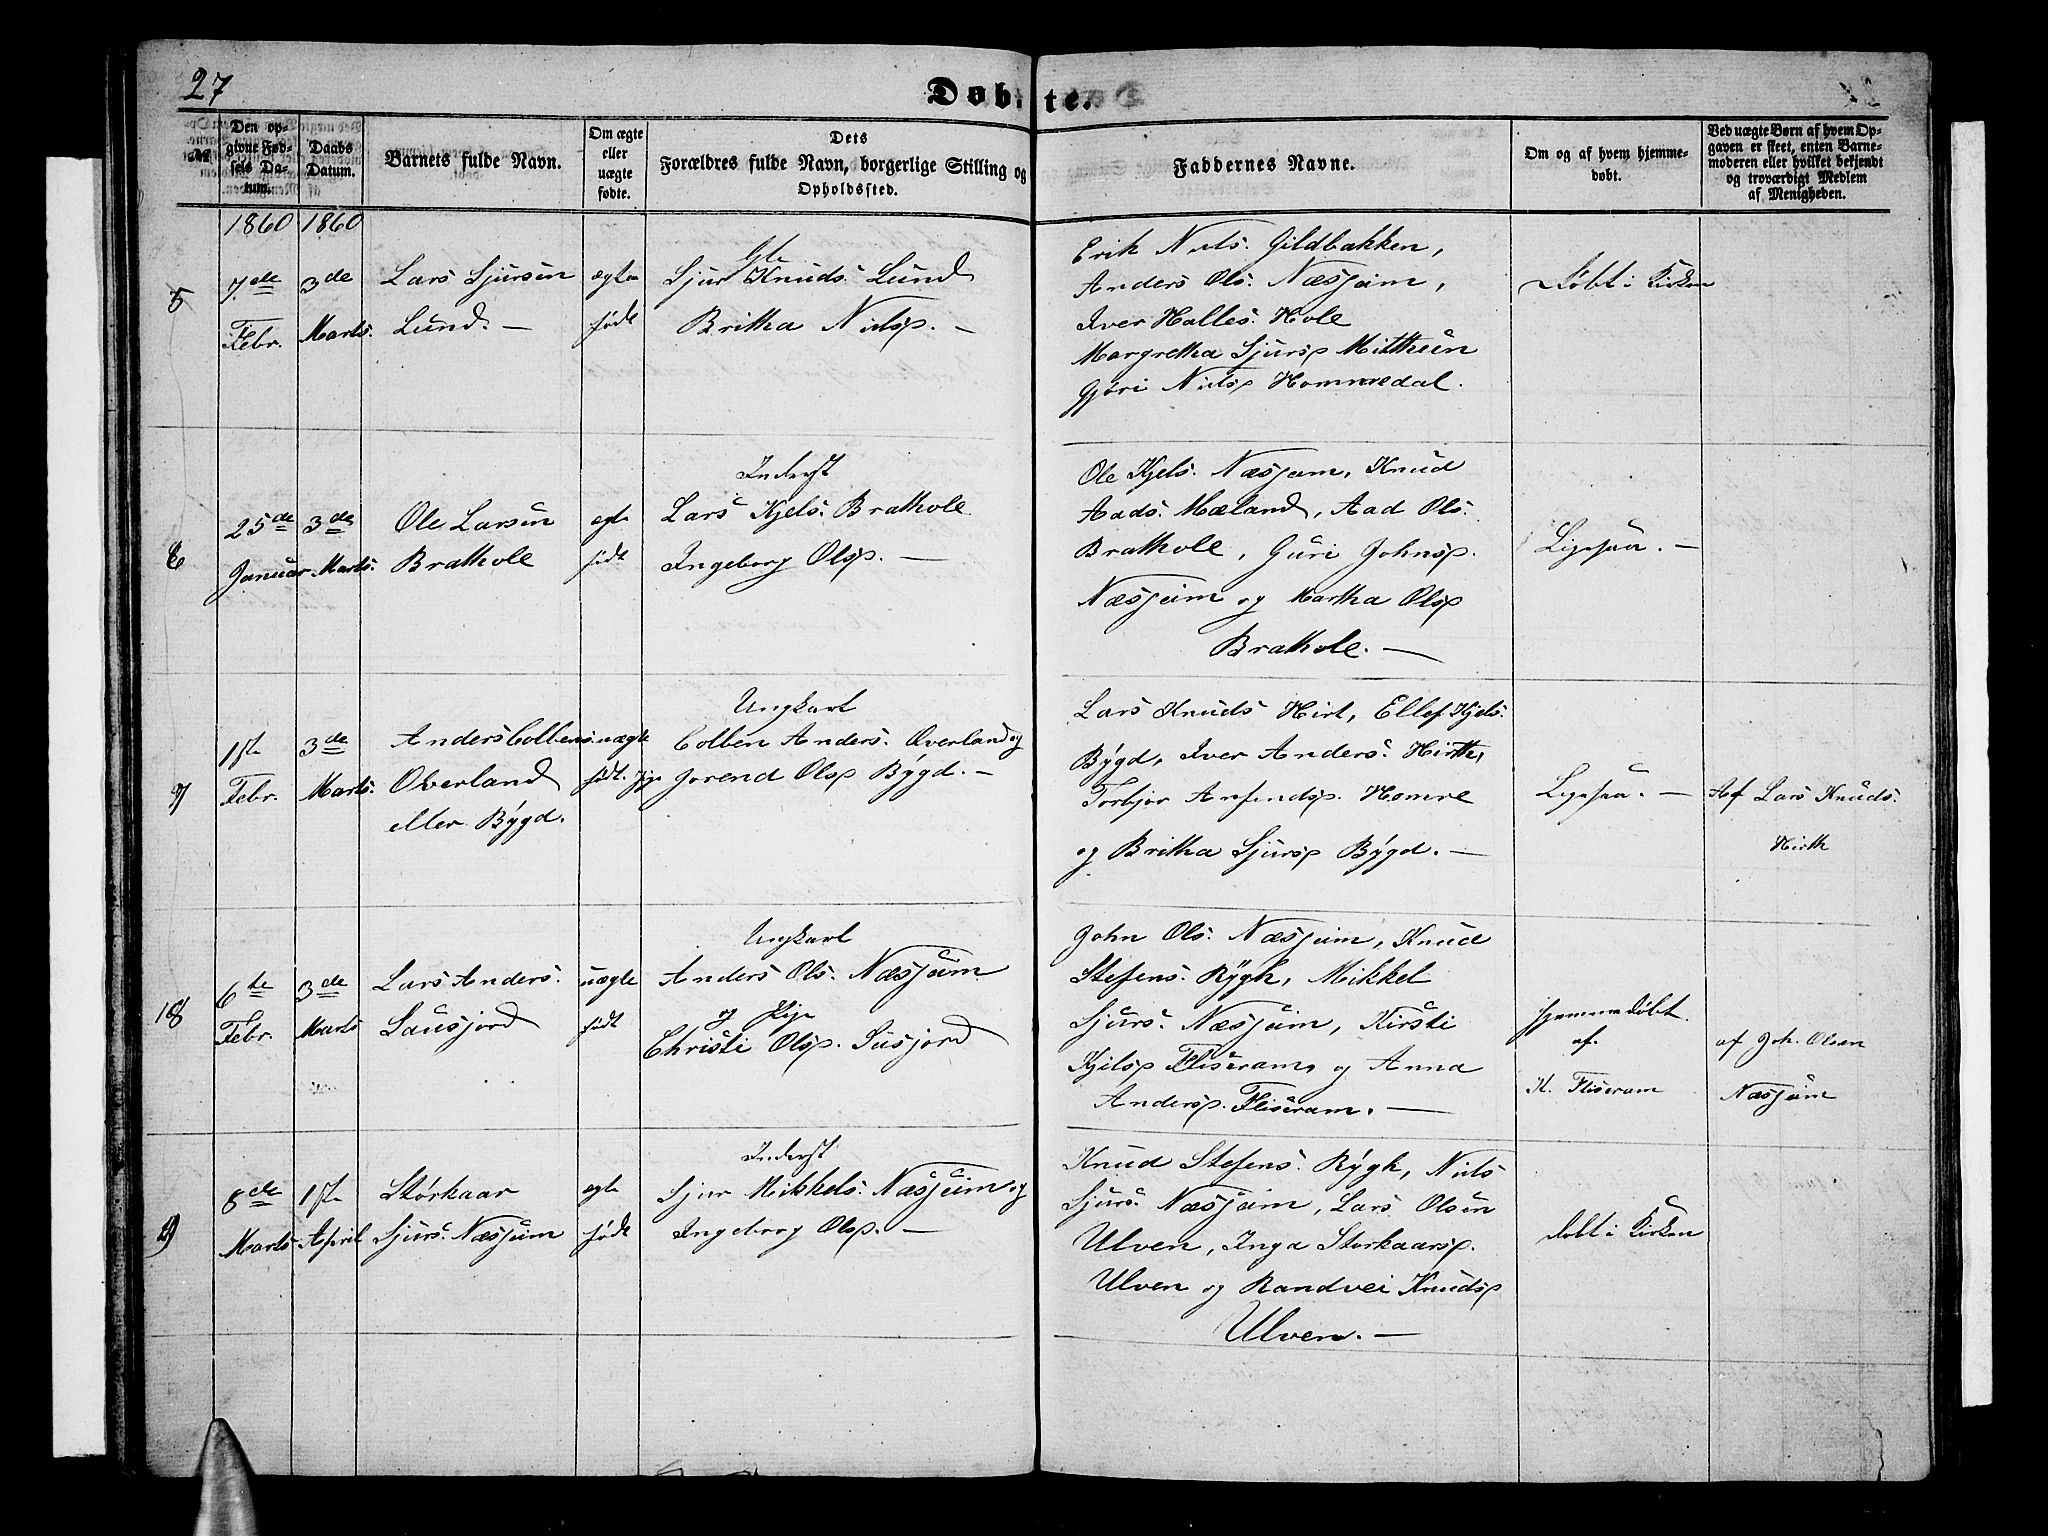 27
Døbte.
№
Den op-
givne Fød-
sels Da-
tum.
Daabs
Datum.
Barnets fulde Navn.
Om ægte
eller
uægte
fødte.
Dets
Forældres fulde Navn, borgerlige Stilling og
Opholdssted.
Faddernes Navne.
Om og af hvem hjemme-
døbt.
Ved uægte Børn af hvem Op-
gaven er skeet, enten Barne-
moderen eller hvilket bekjendt
og troværdigt Medlem
af Menigheden.
1860 1860
5
7de
Febr.
3de
Marts.
Lars Sjursen
Lund. —
ægte
født
Sjur Knuds. Lund
Britha Nielsp. —
Erik Niels. Gildbakken,
Anders Ols. Næsjeim,
Iver Halles. Hole
Margretha Sjursp Mitthun
Gjöri Nielsp Hommedal.
Døbt i Kirken
6
25de
Januar
3de
Marts.
Ole Larsen
Brathole
egte
født
Inderst
Lars Kjels. Brathole
Ingeborg Olsp. —
Ole Kjels. Næsjeim, Knud
Aads. Mæland, Aad Ols.
Brathole, Guri Johnsp.
Næsjeim og Martha Olsp
Brathole. —
Ligesaa. —
7
1ste
Febr.
3de
Marts.
Anders Colbens.
Overland
eller Bÿgd.
uægte
født.
Ungkarl
Colben Anders. Overland og
Pige Jorend Olsp Bÿgd. —
Lars Knuds Hirt, Ellef Kjels.
Bÿgd, Iver Anders. Hirth,
Torbjør Amundsp. Homre
og Britha Sjursp Bÿgd. —
Ligesaa. —
Af Lars Knuds.
Hirth
8
6te
Febr.
3de
Marts
Lars Anders.
Sausjord
uægte
født
Ungkarl
Anders Ols. Næsjeim
og Pige
Christi Olsp. Susjord
John Ols. Næsjeim, Knud
Stefens. Rÿgh, Mikkel
Sjurs. Næsjeim, Kirsti
Kjelsp Fliseram, og Anna
Andersp. Fliseram. —
Hjemmedøbt
af.
K. Fliseram
af Joh. Olsen
Næsjeim
9
8de
Marts
1ste
April
Størkaar
Sjurs. Næsjeim
egte
født
Inderst
Sjur Mikkels. Næsjeim og
Ingeborg Olsp. —
Knud Stefens. Rÿgh, Niels
Sjurs. Næsjeim, Lars Olsen
Ulven, Inga Storkaarsp.
Ulven og Randvei Knudsp
Ulven. —
Døbt i Kirken